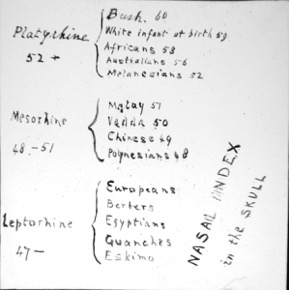 Bush. 60
Platyrhine White infant at birth 59
Africans 58
52 + Australians 56
Melanesians 52
Malay 51
Mesorhine Vedda 50
Chinese 49
48 - 51 Polynesians 48
Europeans
Berbers
Leptorhine Egyptians
Guanches
47 - Eskimo
NASAL INDEX
in the SKULL